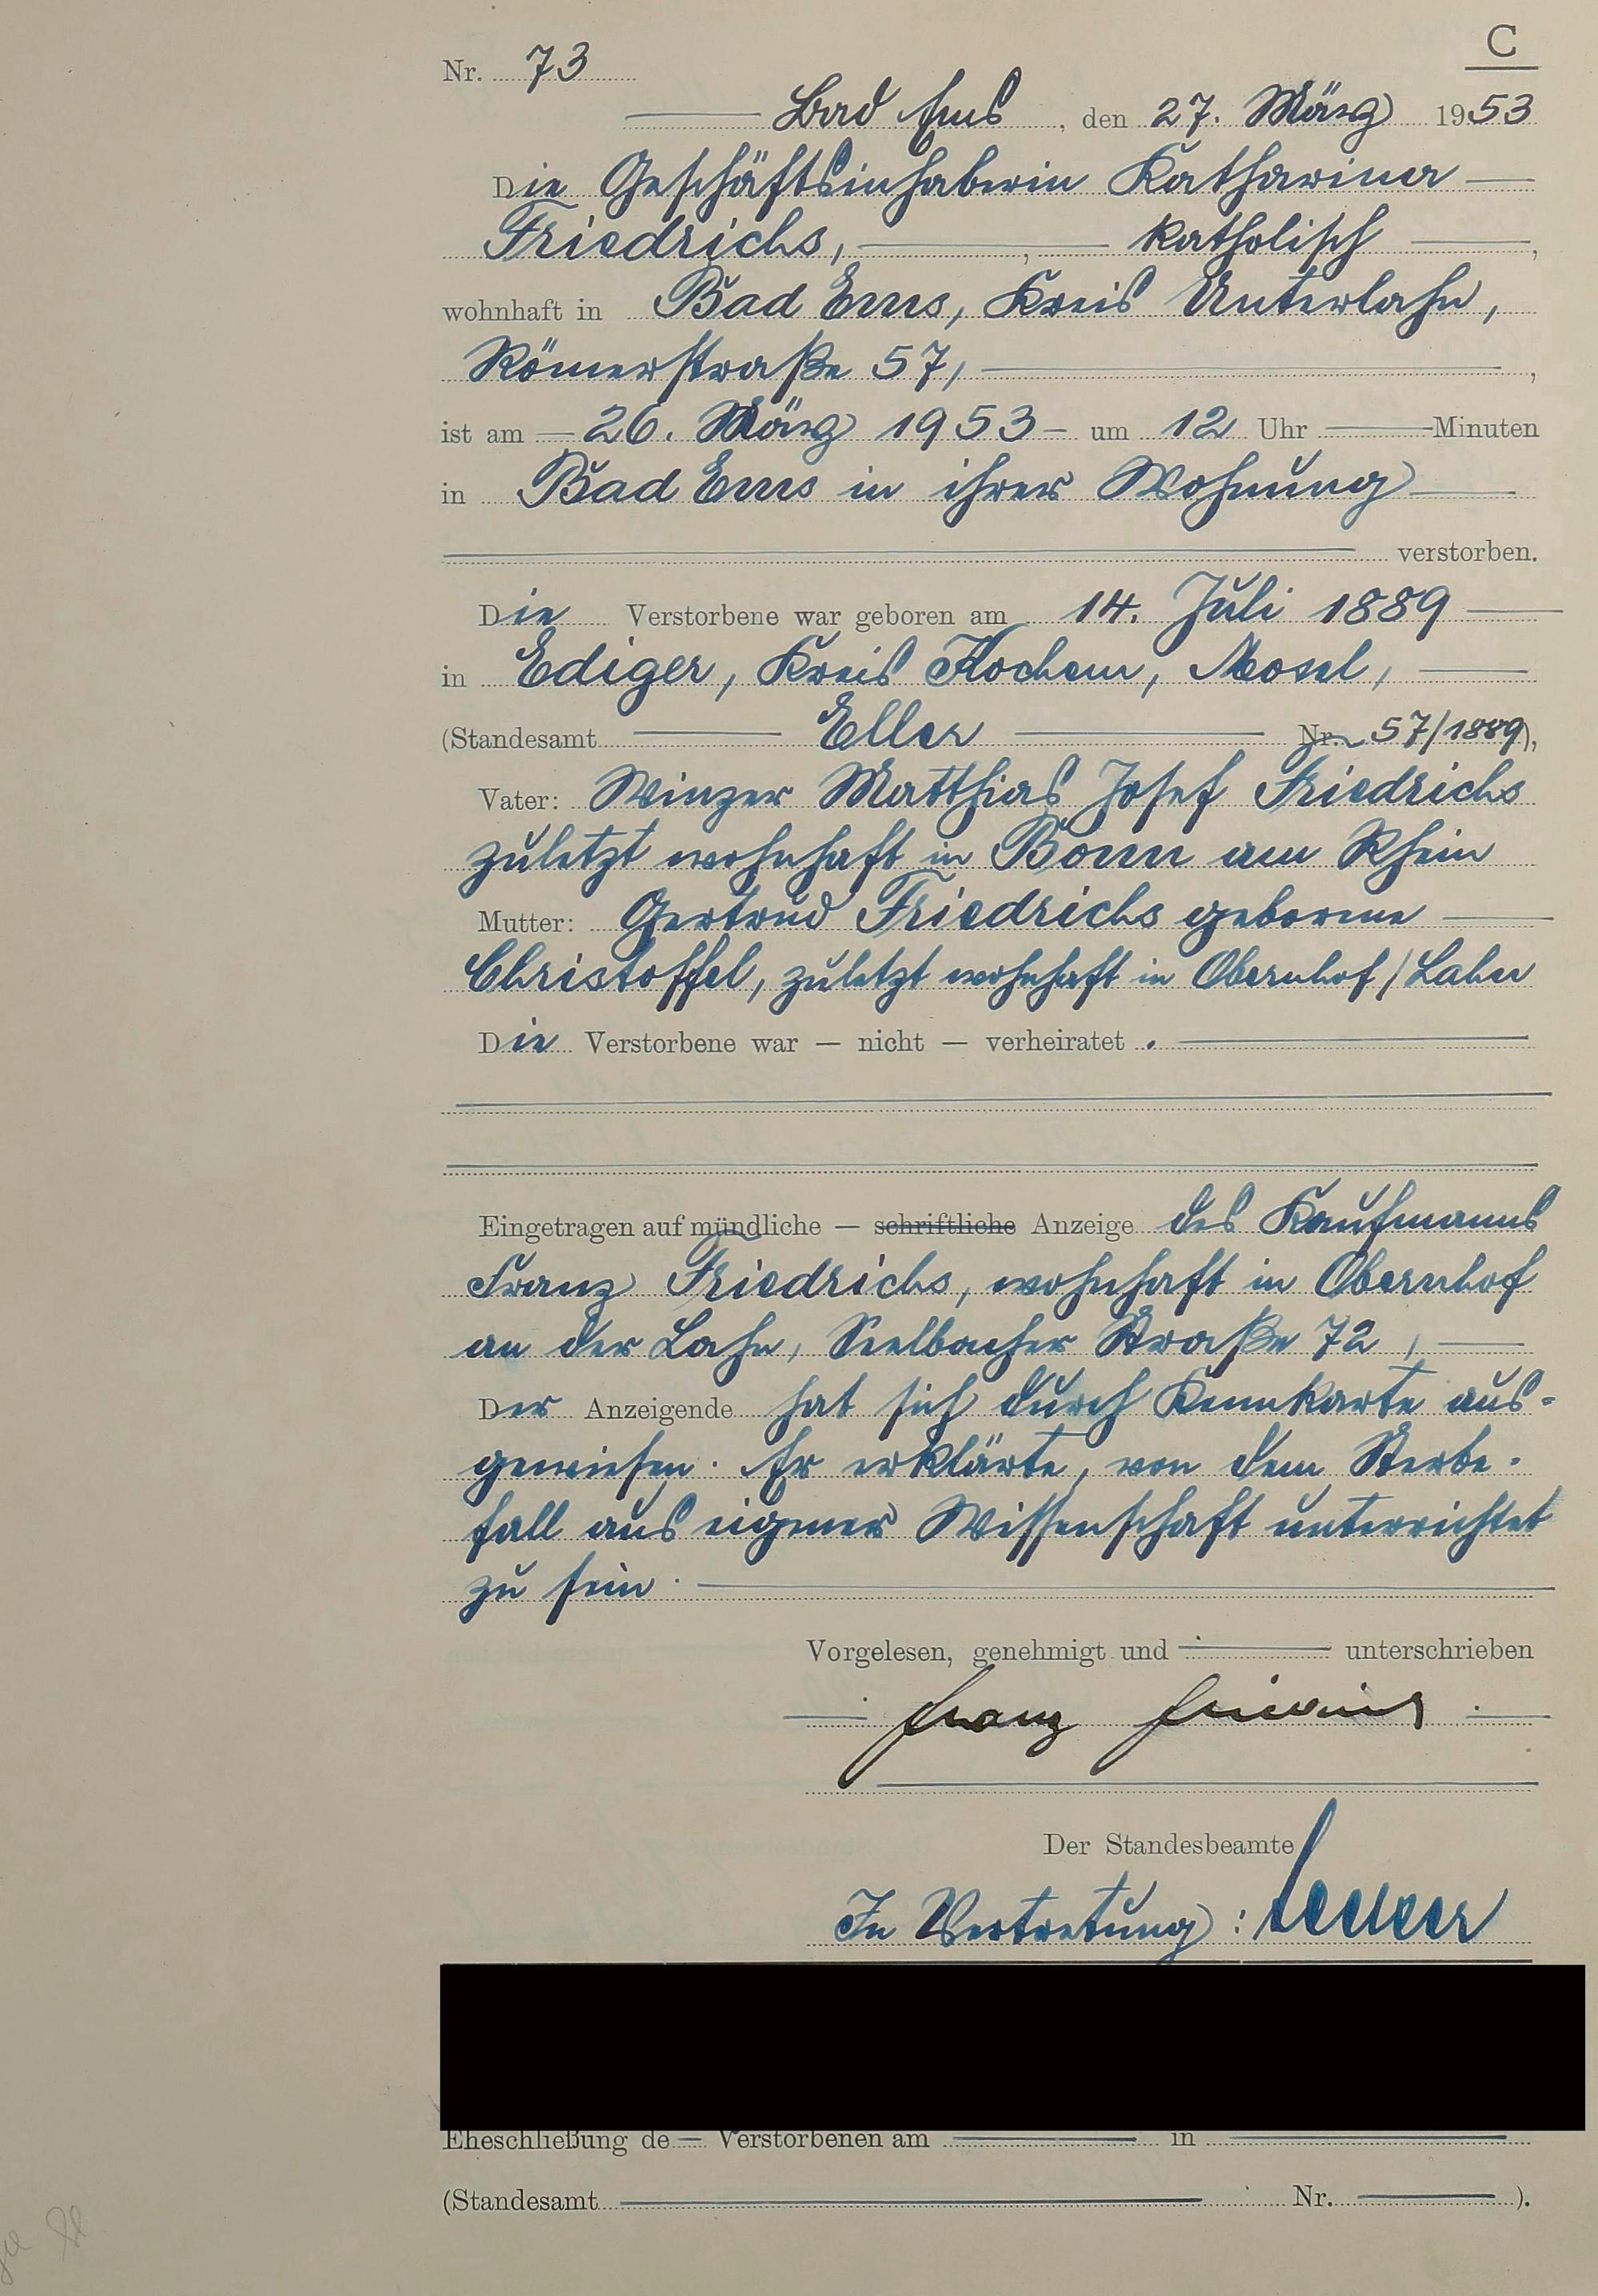 C
Nr. 73
Bad Ems, den 27. März 1953
Die Geschäftsinhaberin Katharina
Friedrichs, katholisch,
wohnhaft in Bad Ems, Kreis Unterlahn,
Römerstraße 57,
ist am 26. März 1953 um 12 Uhr Minuten
in Bad Ems in ihrer Wohnung
verstorben.
Die Verstorbene war geboren am 14. Juli 1889
in Ediger, Kreis Kochem, Mosel,
(Standesamt Eller Nr. 57/1889),
Vater: Winzer Matthias Josef Friedrichs
zuletzt wohnhaft in Bonn am Rhein
Mutter: Gertrud Friedrichs geborene
Christoffel, zuletzt wohnhaft in Obernhof / Lahn
Die Verstorbene war — nicht — verheiratet.
Eingetragen auf mündliche — schriftliche Anzeige des Kaufmanns
Franz Friedrichs, wohnhaft in Obernhof
an der Lahn, Seelbacher Straße 72,
Der Anzeigende hat sich durch Kennkarte aus-
gewiesen. Er erklärte, von dem Sterbe-
fall aus eigener Wissenschaft unterrichtet
zu sein.
Vorgelesen, genehmigt und unterschrieben
Franz Friedrichs
Der Standesbeamte
In Vertretung:
Eheschließung de Verstorbenen am in
(Standesamt Nr. ).